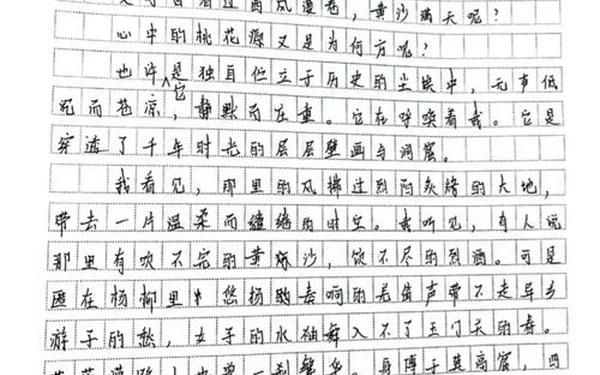 又可曾看过西风漫卷,黄沙满天呢?
心中的桃花源又是为何方呢?
也许是它独自伫立于历史的尘埃中,无声低
沉而苍凉,静默而庄重。它在呼唤着我。它是
穿透了千年时光的层层壁画与洞窟。
我看见,那里的风拂过烈阳炙烤的大地,
带去一片温柔而缱绻的时空。我听见,有人说
那里有吹不完的黄沙,饮不尽的烈酒。可是
匿在杨柳里悠扬奏响的羌笛声带不走异乡
游子的愁,女子的水袖舞入不了玉门关的春。
身傍于莫高窟,四